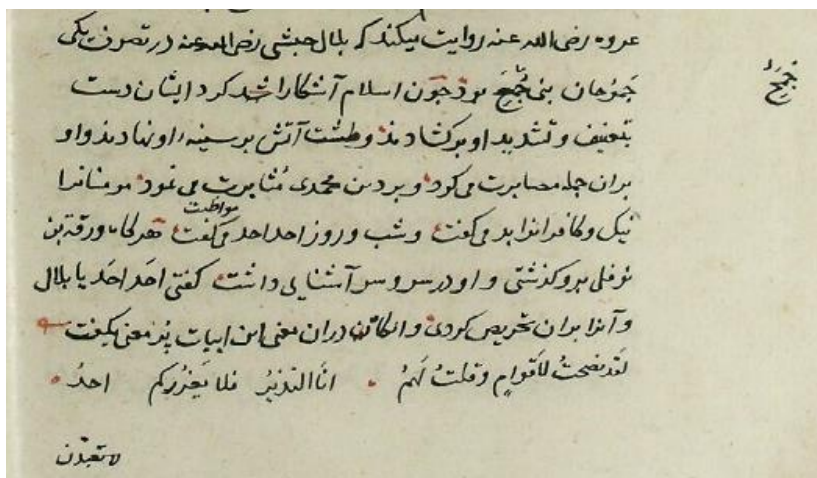 عروه رضی الله عنه روایت میکند که بلال حبشی رضی الله عنه در تصرف یکی
جمح
بنی جمح بود چون اسلام آشکارا کرد ایشان دست
بتعنیف و تشدید او برکشادند و طشت آتش بر سینهٔ او نهادند و او
بران جمله مصابرت می کرد و بر دین محمدی مثابرت می نمود مومنانرا
مواظبت
نیک و کافرانرا بد می گفت و شب و روز احد احد می گفت هرگاه ورقة بن
نوفل برو گذشتی و او در سر و سر آشنایی داشت گفتی احَد احَد یا بلال
و آنرا بران تحریص کردی و دران معنی این ابیات پر معنی بگفت
لَقد نصحتُ لاَقوامٍ وقلتُ لَهمُ انا النذیرُ فلا یَغرُرکم احدُ
لا تعبدن